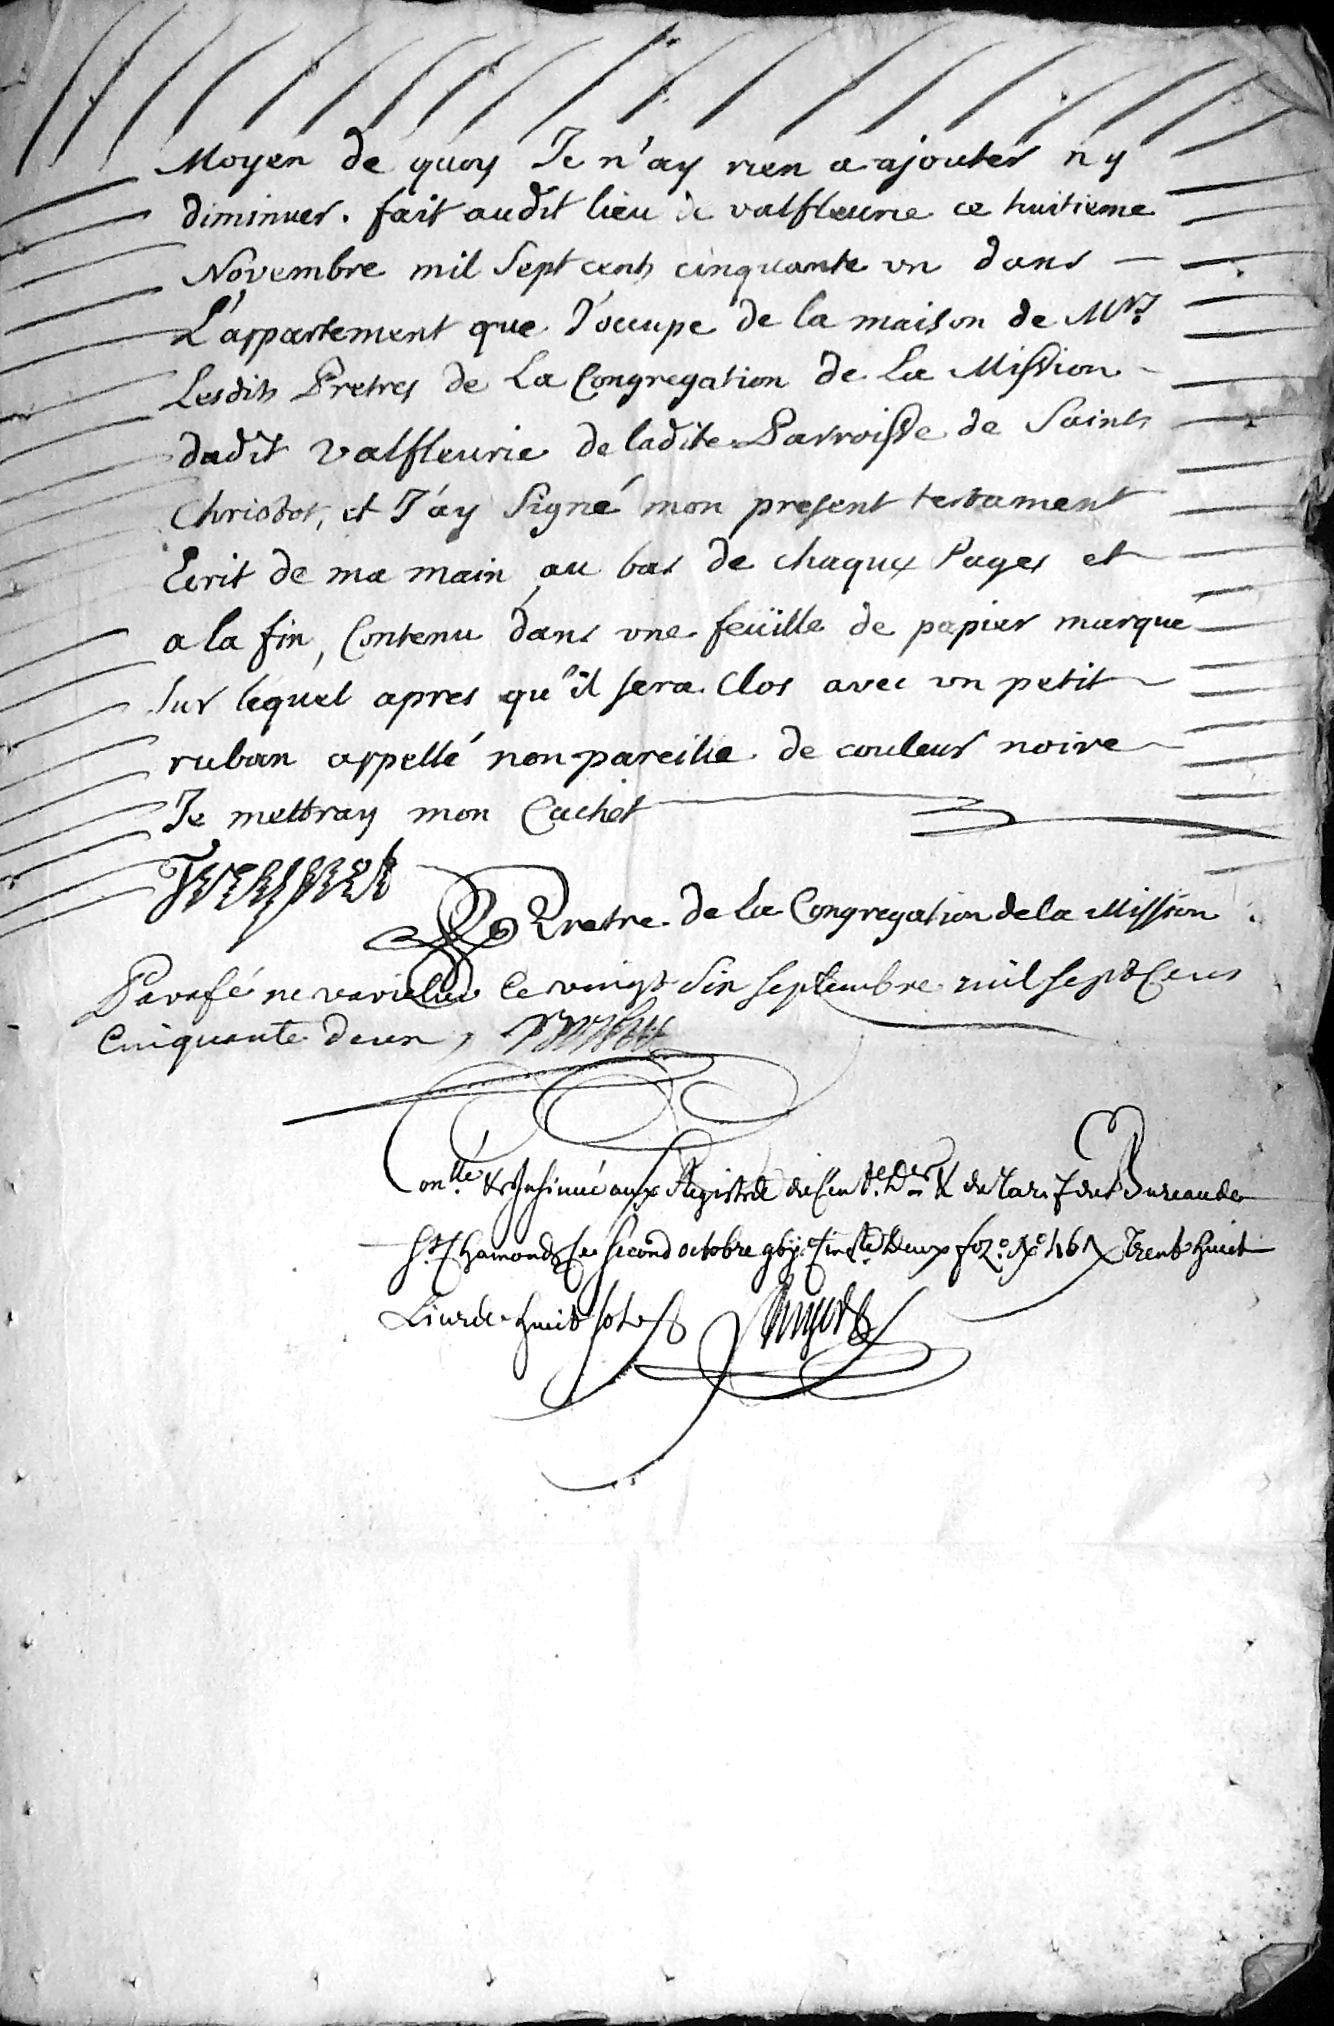 Moyen de quoy Je n'ay rien a ajouter ny
diminuer. fait audit lieu de valfleurie ce huitieme
Novembre mil Sept cents cinquante un dans
L'appartement que J'occupe de la maison de Mrs
Lesdits Pretres de La Congregation de La Mission
dudit valfleurie de ladite Parroisse de Saint
Christot, et J'ay Signé mon present testament
Ecrit de ma main au bas de chaques Pages et
a la fin, Contenu dans une feüille de papier marqué
Sur lequel apres qu'il sera Clos avec un petit
ruban appellé non-pareille de couleur noire
Je mettray mon Cachet
Pretre de La Congregation de la Mission
Parafé ne varietur Ce vingt Six septembre mil sept Cens
Cinquante deux,
Conllé & Insinué aux Registres du Bureau de
St Chamond Le second octobre Trente huit
Livres huit sols